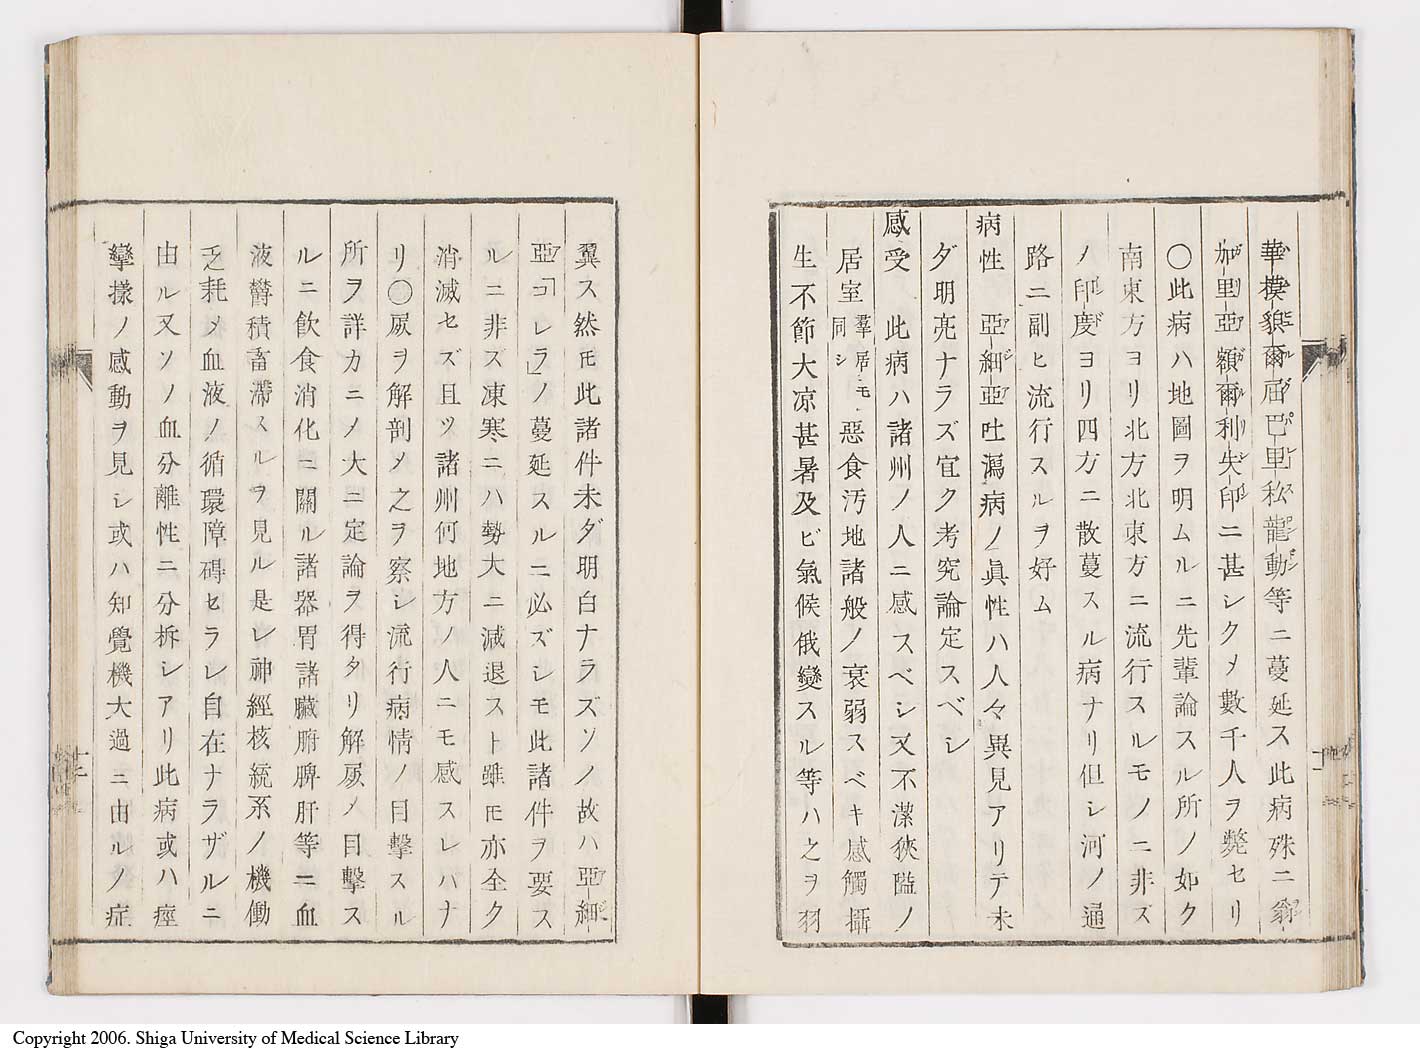 華模貌爾届巴里私龍動等ニ蔓延ス此病殊ニ翁
加里亞額爾利失印ニ甚シクメ數千人ヲ斃セリ
〇此病ハ地圖ヲ明ムルニ先輩論スル所ノ如ク
南東方ヨリ北方北東方ニ流行スルモノニ非ズ
ノ印度ヨリ四方ニ散蔓スル病ナリ但シ河ノ通
路ニ副ヒ流行スルヲ好ム
病性 亞細亞吐瀉病ノ眞性ハ人々異見アリテ未
ダ明亮ナラズ宜ク考究論定スベシ
感受 此病ハ諸州ノ人ニ感スベシ又不潔狹隘ノ
居室羣居モ同シ惡食汚地諸般ノ衰弱スベキ感觸攝
生不節大凉甚暑及ビ氣候俄變スル等ハ之ヲ羽
翼ス然モ此諸件未ダ明白ナラズソノ故ハ亞細
亞「コレラ」ノ蔓延スルニ必ズシモ此諸件ヲ要ス
ルニ非ズ凍寒ニハ勢大ニ減退スト雖モ亦全ク
消滅セズ且ツ諸州何地方ノ人ニモ感スレハナ
リ〇屍ヲ解剖メ之ヲ察シ流行病情ノ目擊スル
所ヲ詳カニメ大ニ定論ヲ得タリ解屍メ目擊ス
ルニ飲食消化ニ關ル諸器胃諸臟腑脾肝等ニ血
液欝積畜滯スルヲ見ル是レ神經核統系ノ機働
乏耗メ血液ノ循環障碍セラレ自在ナラザルニ
由ル又ソノ血分離性ニ分柝シアリ此病或ハ痙
攣樣ノ感動ヲ見シ或ハ知覺機大過ニ由ルノ症
十二
Copyright 2006. Shiga University of Medical Science Library